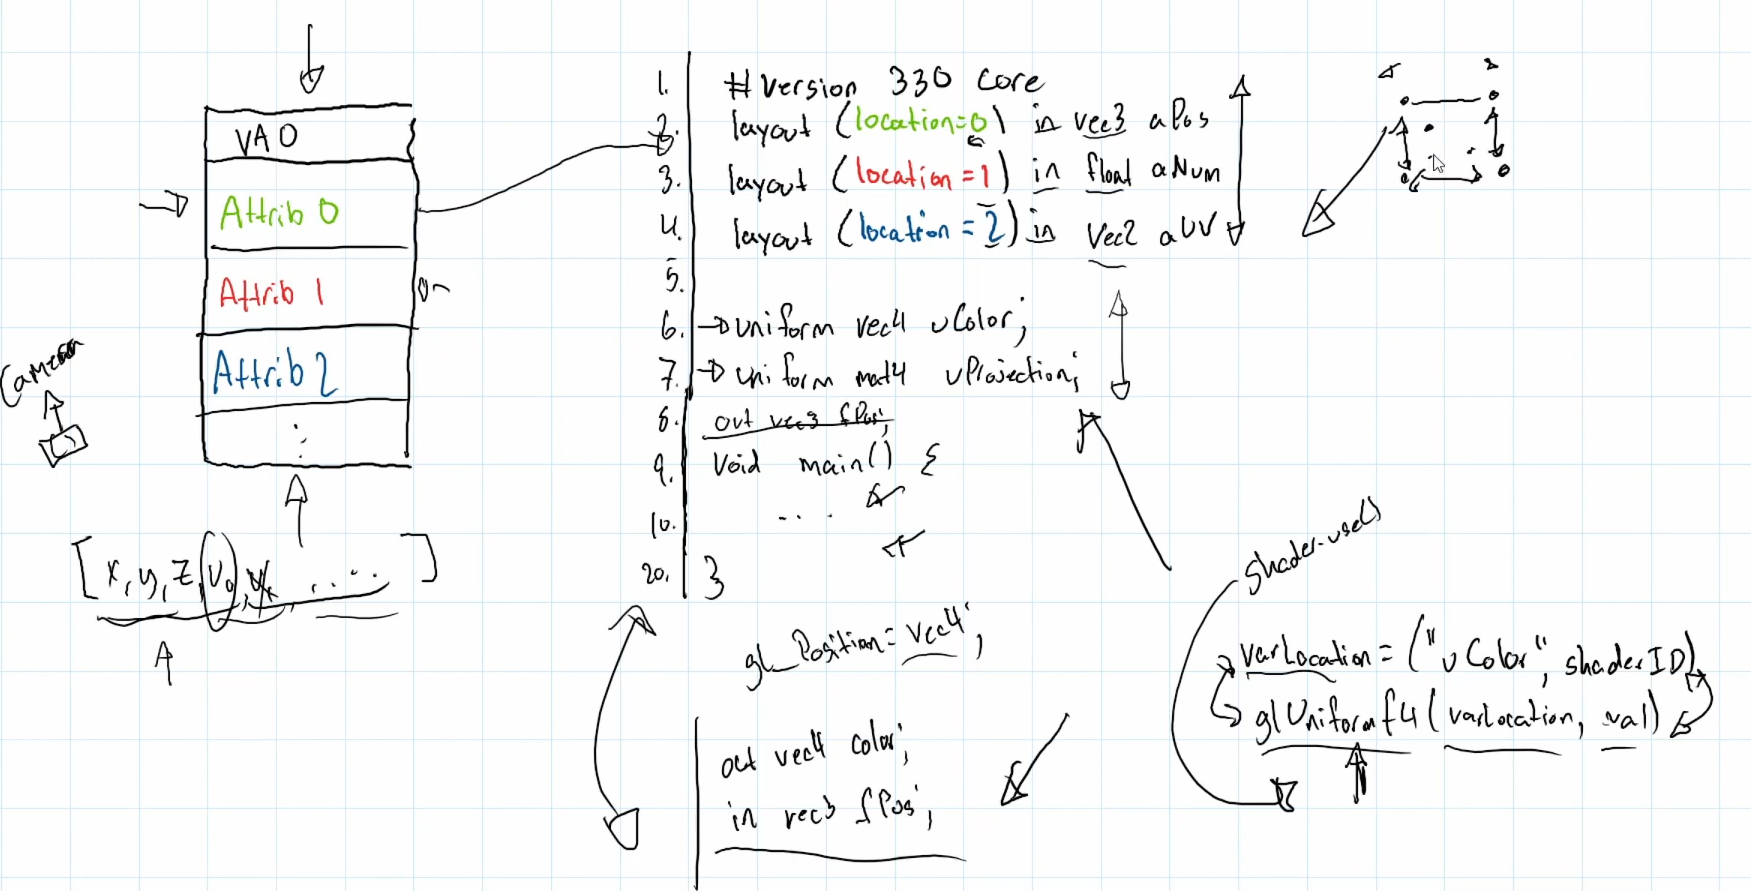 VAO
Attrib 0
Attrib 1
Attrib 2
Camera
[x, y, z, v₀, , ....]
1. #version 330 core
2. layout (location=0) in vec3 aPos
3. layout (location=1) in float aNum
4. layout (location=2) in vec2 aUV
5.
6. uniform vec4 uColor;
7. uniform mat4 uProjection;
8. out vec3 fPos;
9. void main() {
10. ....
20. }
gl_Position = vec4;
out vec4 color;
in vec3 fPos;
shader.use()
varLocation = ("uColor", shaderID)
glUniformf4(varLocation, val)